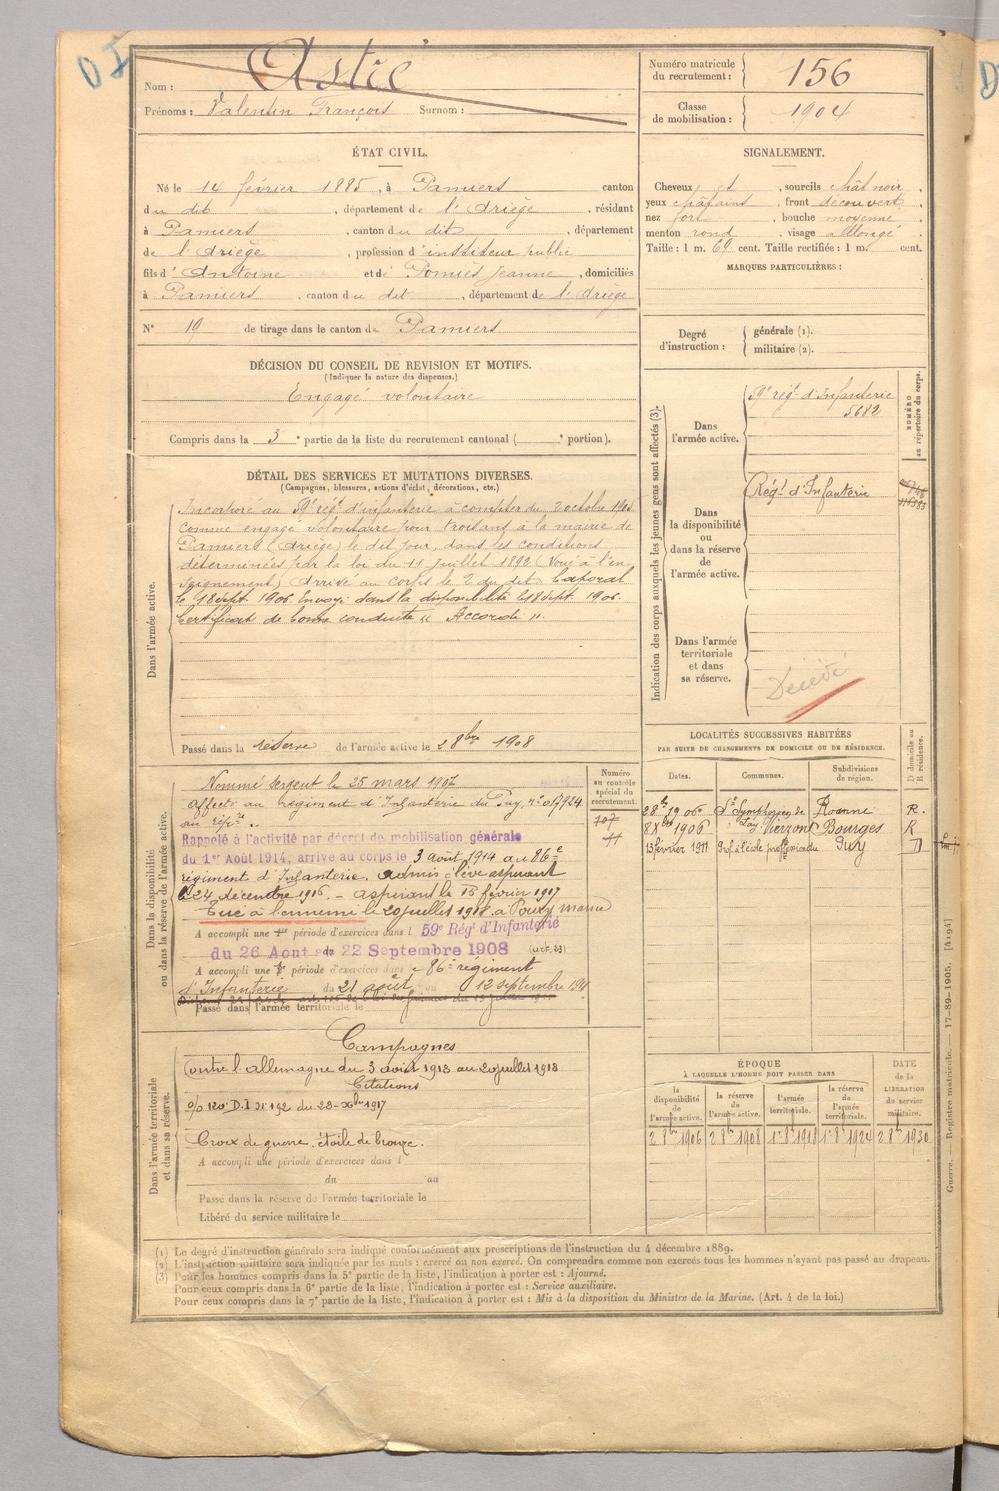 DI
Nom : Astié
Prénoms : Valentin François Surnom :
Numéro matricule du recrutement : 156
Classe de mobilisation : 1904
ÉTAT CIVIL.
Né le 14 février 1885, à Pamiers canton
du dit, département de l'Ariège, résidant
à Pamiers, canton du dit, département
de l'Ariège, profession d'instituteur public
fils d'Antoine et de Pomiès Jeanne, domiciliés
à Pamiers, canton du dit, département de l'Ariège
N° 19 de tirage dans le canton de Pamiers
SIGNALEMENT.
Cheveux et, sourcils chât noir,
yeux châtains, front découvert,
nez fort, bouche moyenne,
menton rond, visage allongé.
Taille : 1 m. 69 cent. Taille rectifiée : 1 m. cent.
MARQUES PARTICULIÈRES :
Degré d'instruction : générale (1).
militaire (2).
DÉCISION DU CONSEIL DE REVISION ET MOTIFS.
(Indiquer la nature des dispenses.)
Engagé volontaire
Compris dans la 3e partie de la liste du recrutement cantonal ( e portion).
DÉTAIL DES SERVICES ET MUTATIONS DIVERSES.
(Campagnes, blessures, actions d'éclat, décorations, etc.)
Dans l'armée active.
Incorporé au 59e régt d'infanterie à compter du 2 octobre 1905
comme engagé volontaire pour trois ans à la mairie de
Pamiers (Ariège) le dit jour, dans les conditions
déterminées par la loi du 11 juillet 1892 (Voué à l'en-
seignement) Arrivé au corps le 2 du dit. Caporal
le 18 sept. 1906. Envoyé dans la disponibilité le 18 sept. 1906.
Certificat de bonne conduite "Accordé".
Passé dans la réserve de l'armée active le 2 8bre 1908
Indication des corps auxquels les jeunes gens sont affectés (3).
NUMÉRO au répertoire du corps.
Dans l'armée active.
59e régt d'Infanterie
5682
Dans la disponibilité ou dans la réserve de l'armée active.
Régt d'Infanterie
Dans l'armée territoriale et dans sa réserve.
Décédé
Dans la disponibilité ou dans la réserve de l'armée active.
Numéro au contrôle spécial du recrutement.
707
11
Nommé sergent le 25 mars 1907
affecté au régiment d'Infanterie du Puy, n° 017924
au répre.
Rappelé à l'activité par décret de mobilisation générale
du 1er Août 1914, arrivé au corps le 3 août 1914 au 86e
régiment d'Infanterie. Admis élève aspirant
le 24 décembre 1916. - aspirant le 15 février 1917
Tué à l'ennemi le 20 juillet 1918 à Pourcy marne
A accompli une 1re période d'exercices dans l 59e Régt d'Infanterie
du 26 Aout au 22 Septembre 1908 (art. 23)
A accompli une 2e période d'exercices dans le 86e régiment
d'Infanterie du 21 août au 12 septembre 1911
Passé dans l'armée territoriale le
LOCALITÉS SUCCESSIVES HABITÉES
PAR SUITE DE CHANGEMENTS DE DOMICILE OU DE RÉSIDENCE.
D domicile ou R résidence.
Dates. Communes. Subdivisions de région.
28 1906 St Symphorien de Lay Roanne R.
8 Xbre 1906 Vierzon Bourges R
13 février 1911 Prof. à l'école profession du Puy D
Dans l'armée territoriale et dans sa réserve.
Campagnes
Contre l'allemagne du 3 août 1918 au 20 juillet 1918
Citations
o/o 120e D.I N° 192 du 28-Xbre 1917
Croix de guerre. étoile de bronze.
A accompli une période d'exercices dans l
du au
Passé dans la réserve de l'armée territoriale le
Libéré du service militaire le
ÉPOQUE
À LAQUELLE L'HOMME DOIT PASSER DANS
DATE de la LIBÉRATION du service militaire.
la disponibilité de l'armée active. la réserve de l'armée active. l'armée territoriale. la réserve de l'armée territoriale.
2 8bre 1906 2 8bre 1908 1er 8bre 1918 1er 8bre 1924 2 8bre 1930
(1) Le degré d'instruction générale sera indiqué conformément aux prescriptions de l'instruction du 4 décembre 1889.
(2) L'instruction militaire sera indiquée par les mots : exercé ou non exercé. On comprendra comme non exercés tous les hommes n'ayant pas passé au drapeau.
(3) Pour les hommes compris dans la 5e partie de la liste, l'indication à porter est : Ajourné.
Pour ceux compris dans la 6e partie de la liste, l'indication à porter est : Service auxiliaire.
Pour ceux compris dans la 7e partie de la liste, l'indication à porter est : Mis à la disposition du Ministre de la Marine. (Art. 4 de la loi.)
Guerre. — Registre matricule. — 17-89-1905. [4194]